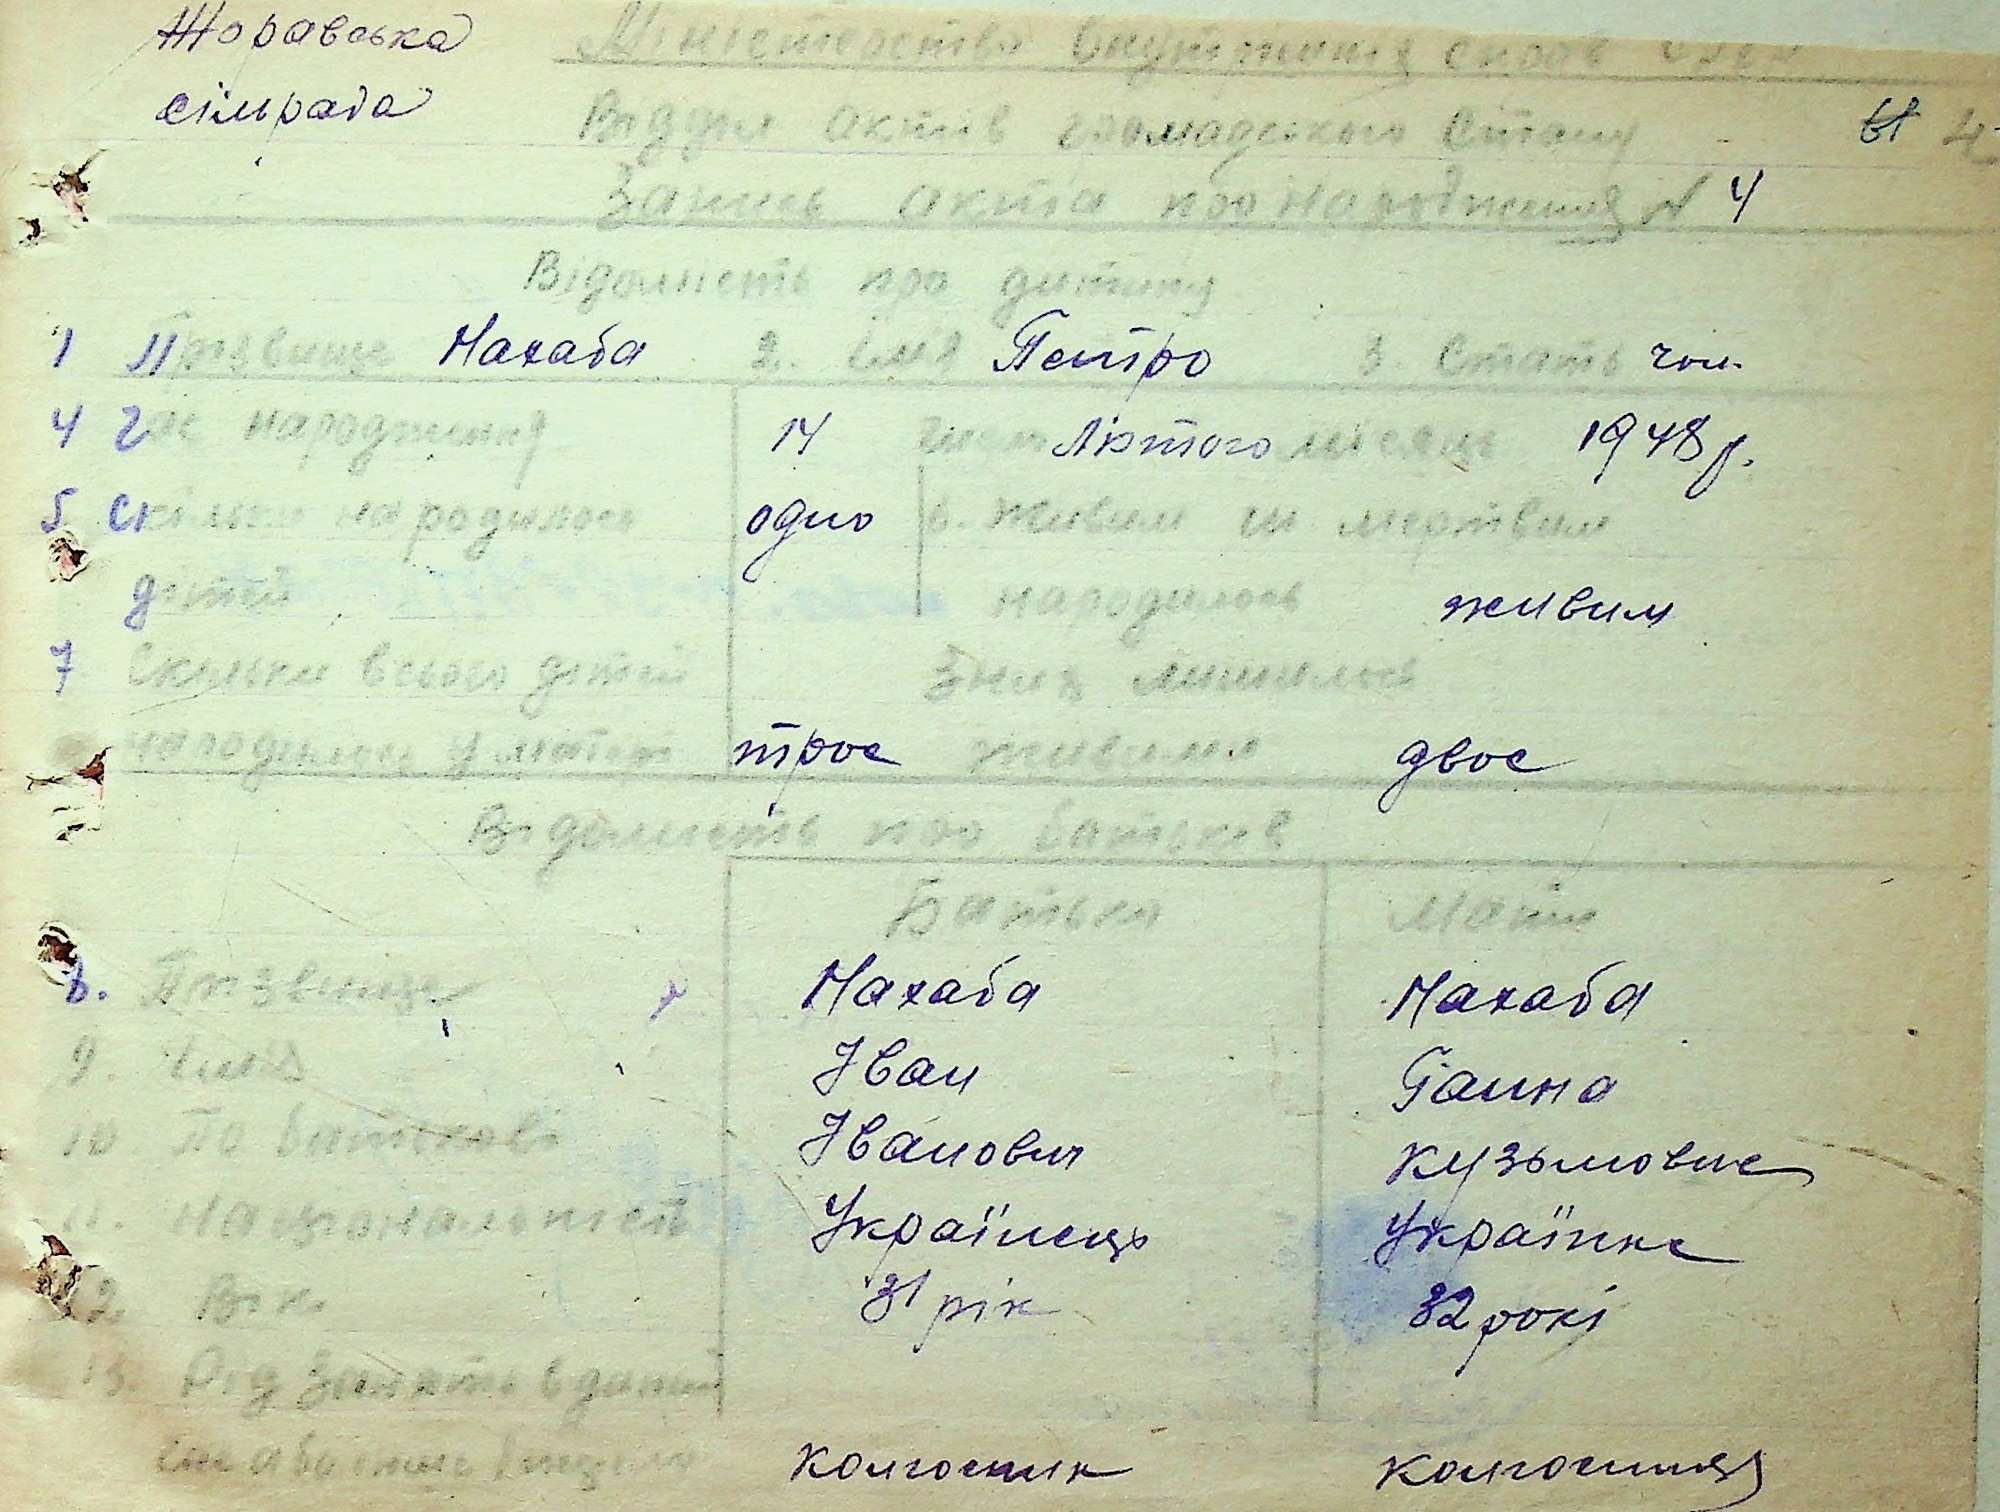 Жоравська Міністерство внутрішніх справ
сільрада
Відділ актів громадського стану 4
Запис акта про народження № 4
Відомість про дитину
1 Прізвище Махаба 2. Імя Петро 3. Стать чол.
4 Час народження 14 число Лютого місяць 1948 р.
5 Скільки народилось одно 6. Живим чи мертвим
дітей народилось живим
7 Скільки всього дітей З них лишилось
народилось у матері троє живими двоє
Відомість про батьків
Батько Мати
8. Прізвище Махаба Махаба
9. Імя Іван Ганна
10. По батькові Іванович Кузьмовна
11. Національність Українець Українка
12. Вік 31 рік 32 рокі
13. Рід занять в даний
колгоспник колгоспниця